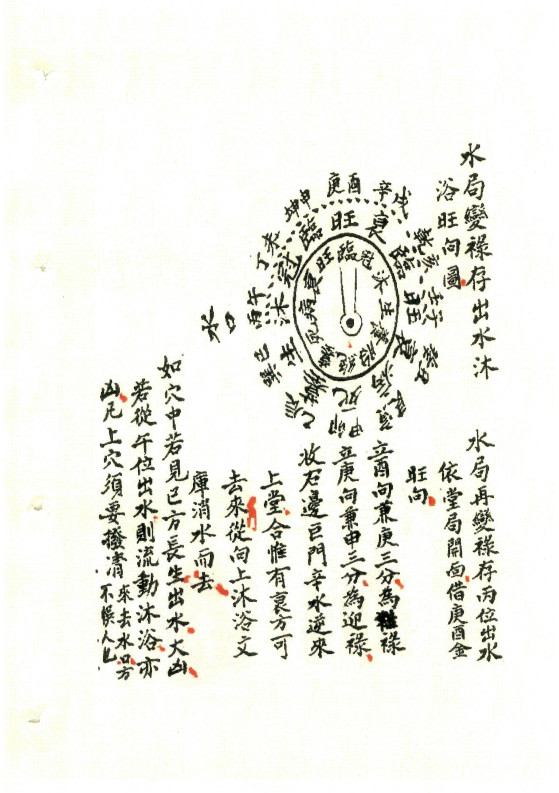 水局變祿存出水沐
浴旺向圖
庚酉
辛戌
乾亥
壬子
癸丑
艮寅
甲卯
乙辰
巽巳
丙午
丁未
坤申
水口
水局再變祿存丙位出水
依堂局開面借庚酉金
旺向
立酉向兼庚三分為祿
立庚向兼申三分為迎祿
收左邊巨門辛水逆來
上堂合惟有衰方可
去來從向上沐浴文
庫消水而去
如穴中若見巳方長生出水大凶
若從午位出水則流動沐浴亦
凶凡上穴須要撥清來去水口方
不悞人也